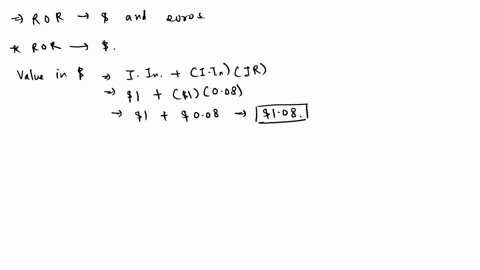 ⇒ ROR → $ and euros.
* ROR → $.
Value in $ ⇒ I.In. + (I.In)(IR)
→ $1 + ($1)(0.08)
→ $1 + $0.08 → $1.08.